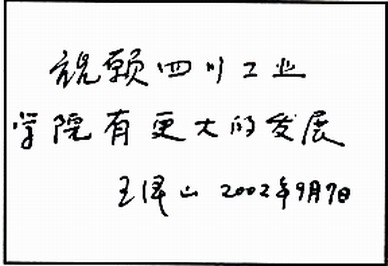 祝愿四川工业
学院有更大的发展
王泽山 2002年9月7日